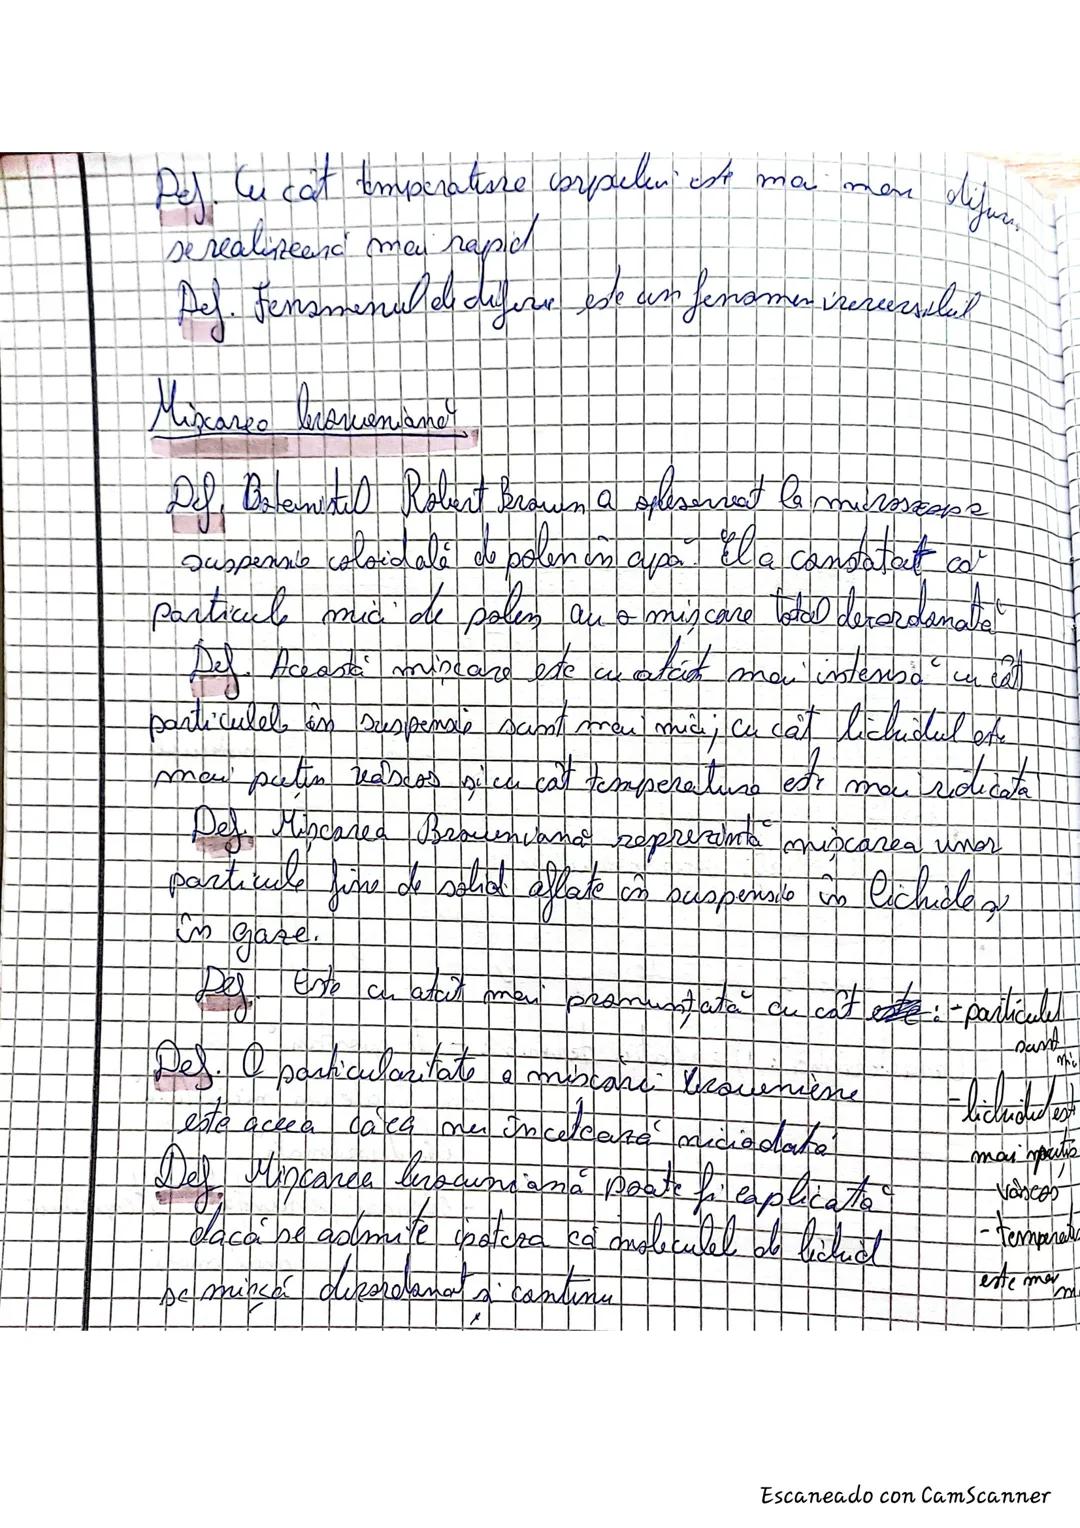 Def. Cu cât temperature corpului este mai mare difuz.
se realizează mai rapid
Def. Fenomenul de difuzie este un fenomen ireversibil
Mișcarea browniană
Def. Botanistul Robert Brown a observat la microscope
suspensie coloidală de polen în apă. El a constatat că
particule mici de polen au o mișcare total dezordonată
Def. Această mișcare este cu atât mai intensă cu cât
particulele în suspensie sunt mai mici; cu cât lichidul este
mai puțin vâscos și cu cât temperatura este mai ridicata
Def. Mișcarea Browniană reprezintă mișcarea unor
particule fine de solid aflate în suspensie în lichide și
în gaze.
Def. Este cu atât mai pronunțată cu cât este: - particulel
sunt mic
Def. O particularitate a miscării browniene
- lichidul est
este aceea că ea nu încetează niciodată
mai puțin
Def. Mișcarea browniană poate fi explicată
vâscos
dacă se admite ipoteza că moleculel de lichid
- temperatu
se mișcă dezordonat și continu
este mai m
Escaneado con CamScanner